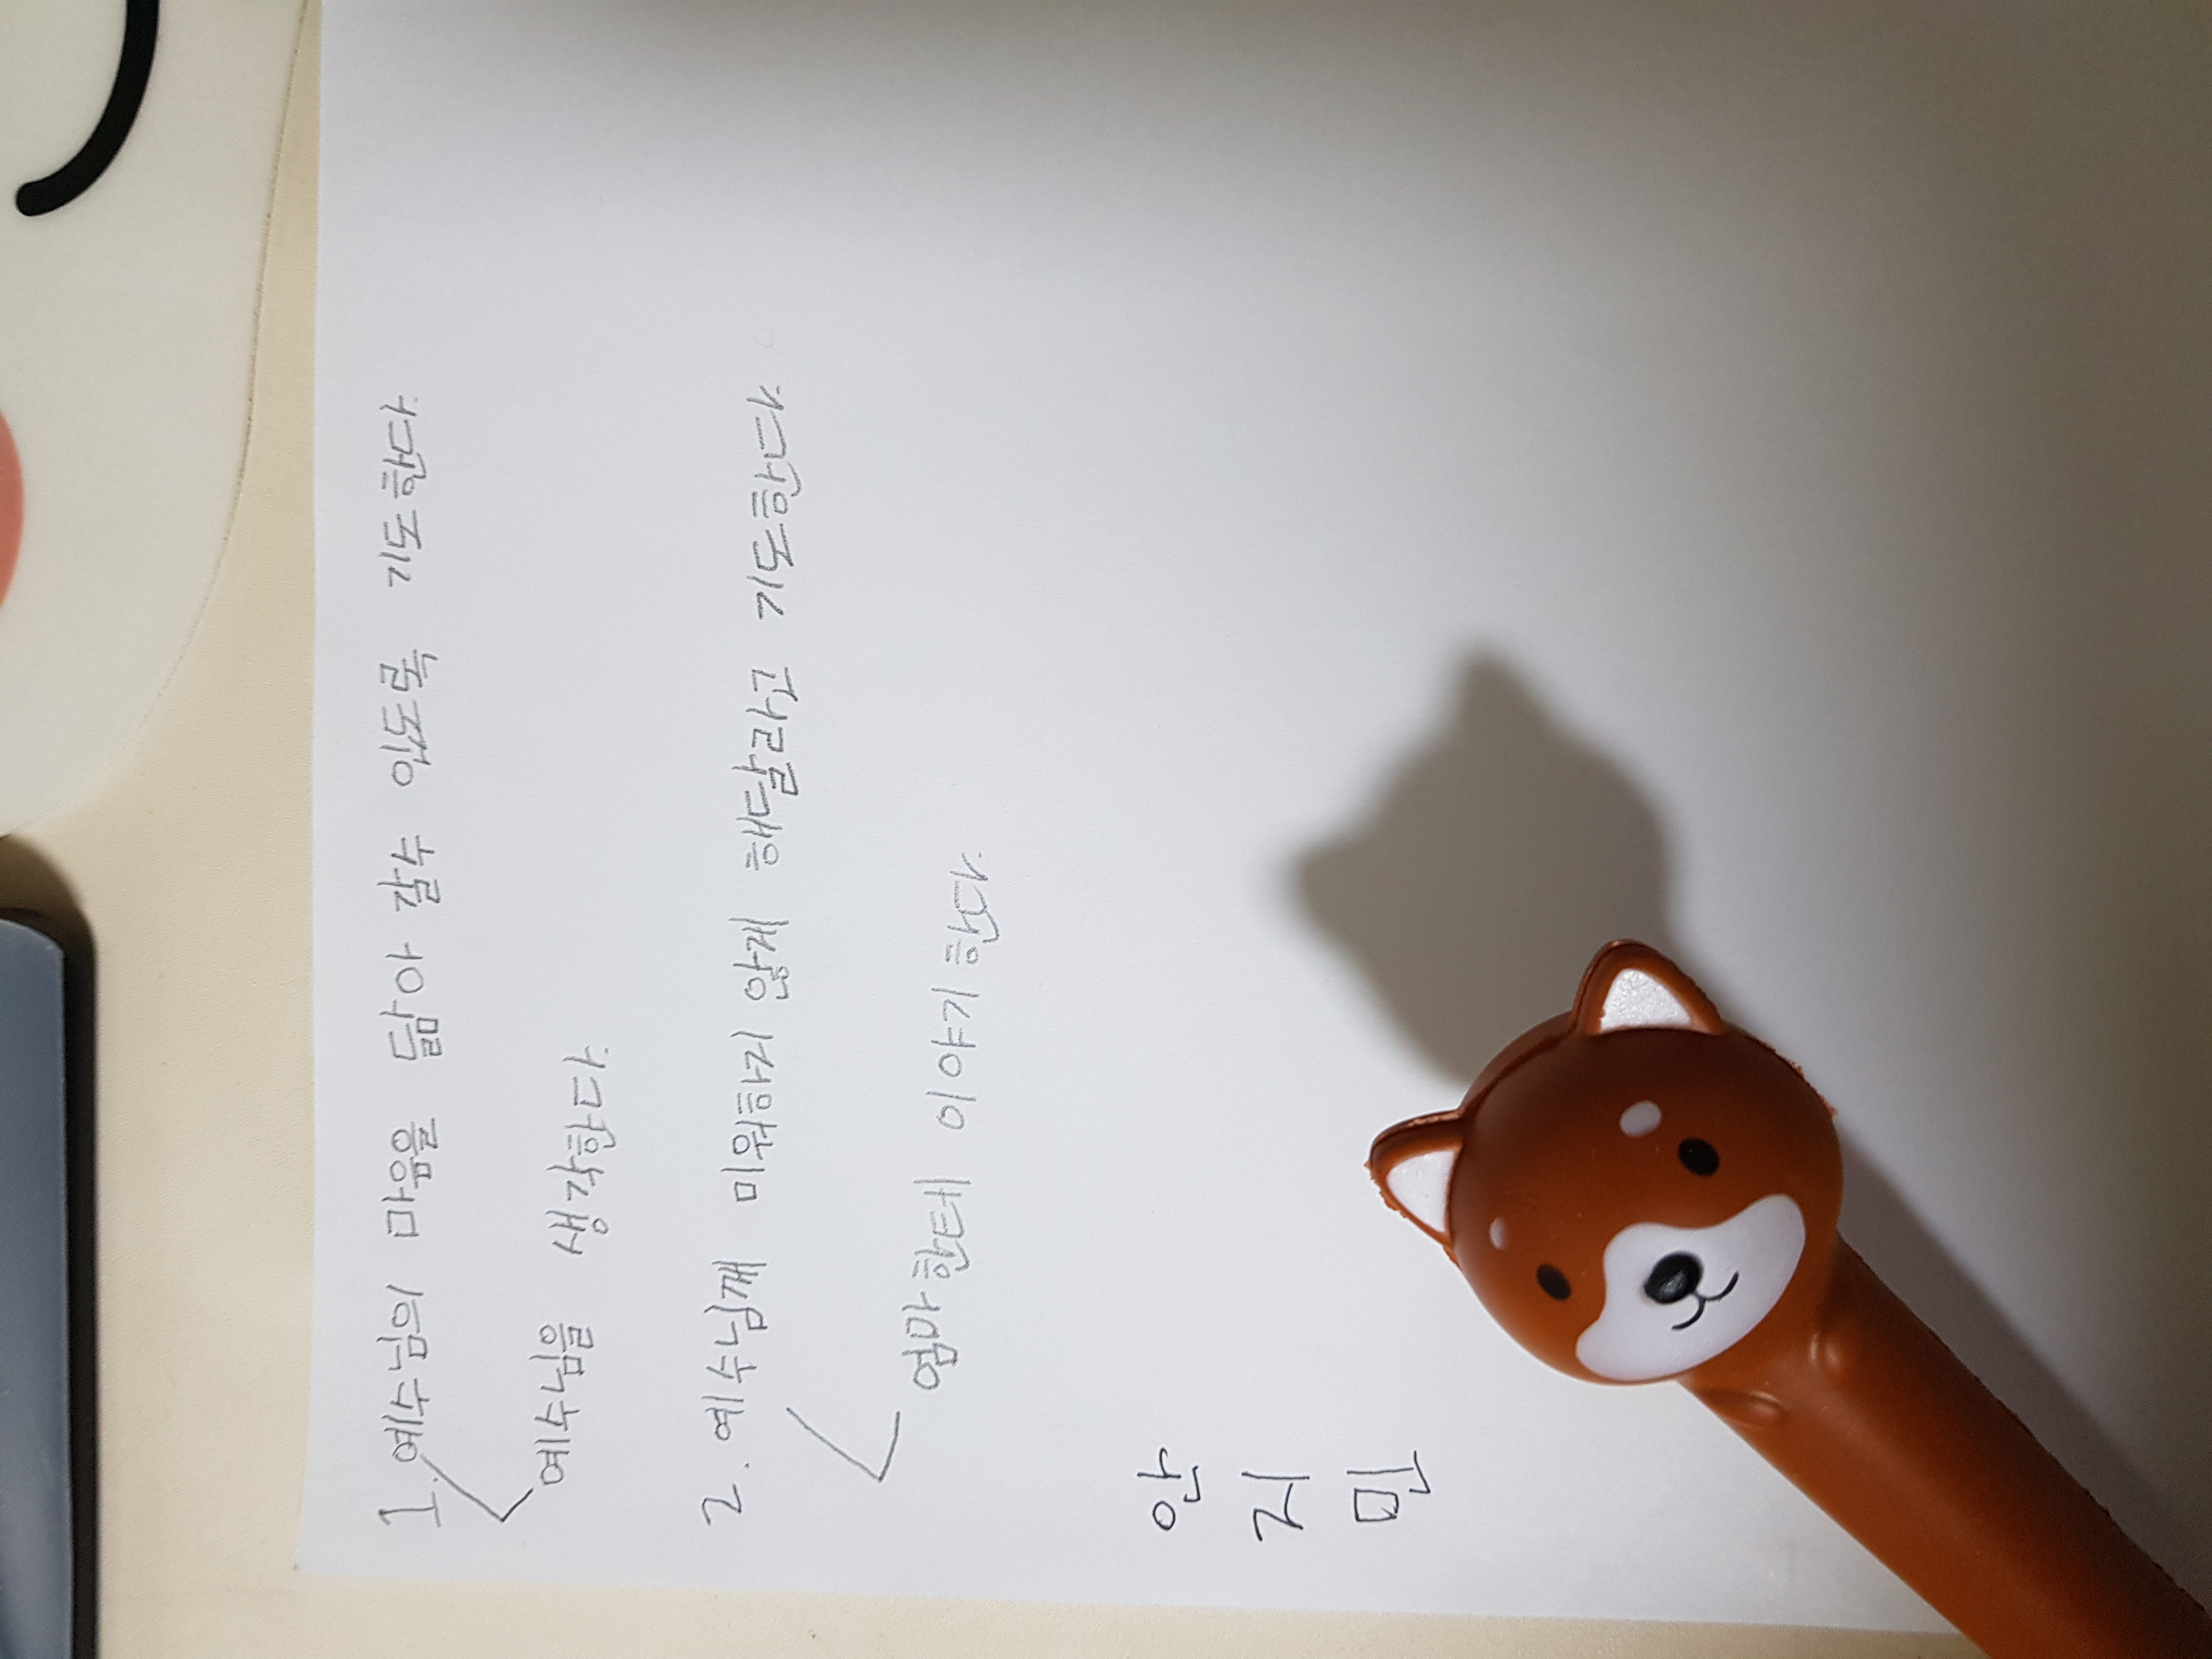 1. 예수님의 마음을 닮아 갈수 있도록 기도한다
예수님을 생각한다
2. 예수님께 미워하지 않게 해달라고 기도한다
엄마한테 이야기 한다
안
지
민